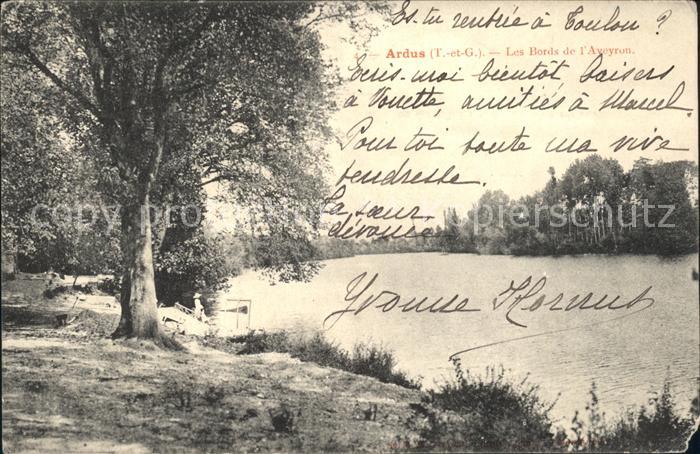 Es. tu rentrée à Toulon ?
Ardus (T.-et-G.). — Les Bords de l'Aveyron.
Ecris. moi bientôt, baisers
à Vonette, amitiés à Marcel.
Pour toi toute ma vive
tendresse.
La sœur
dévouée
Yvonne
copyright protected / Kopierschutz